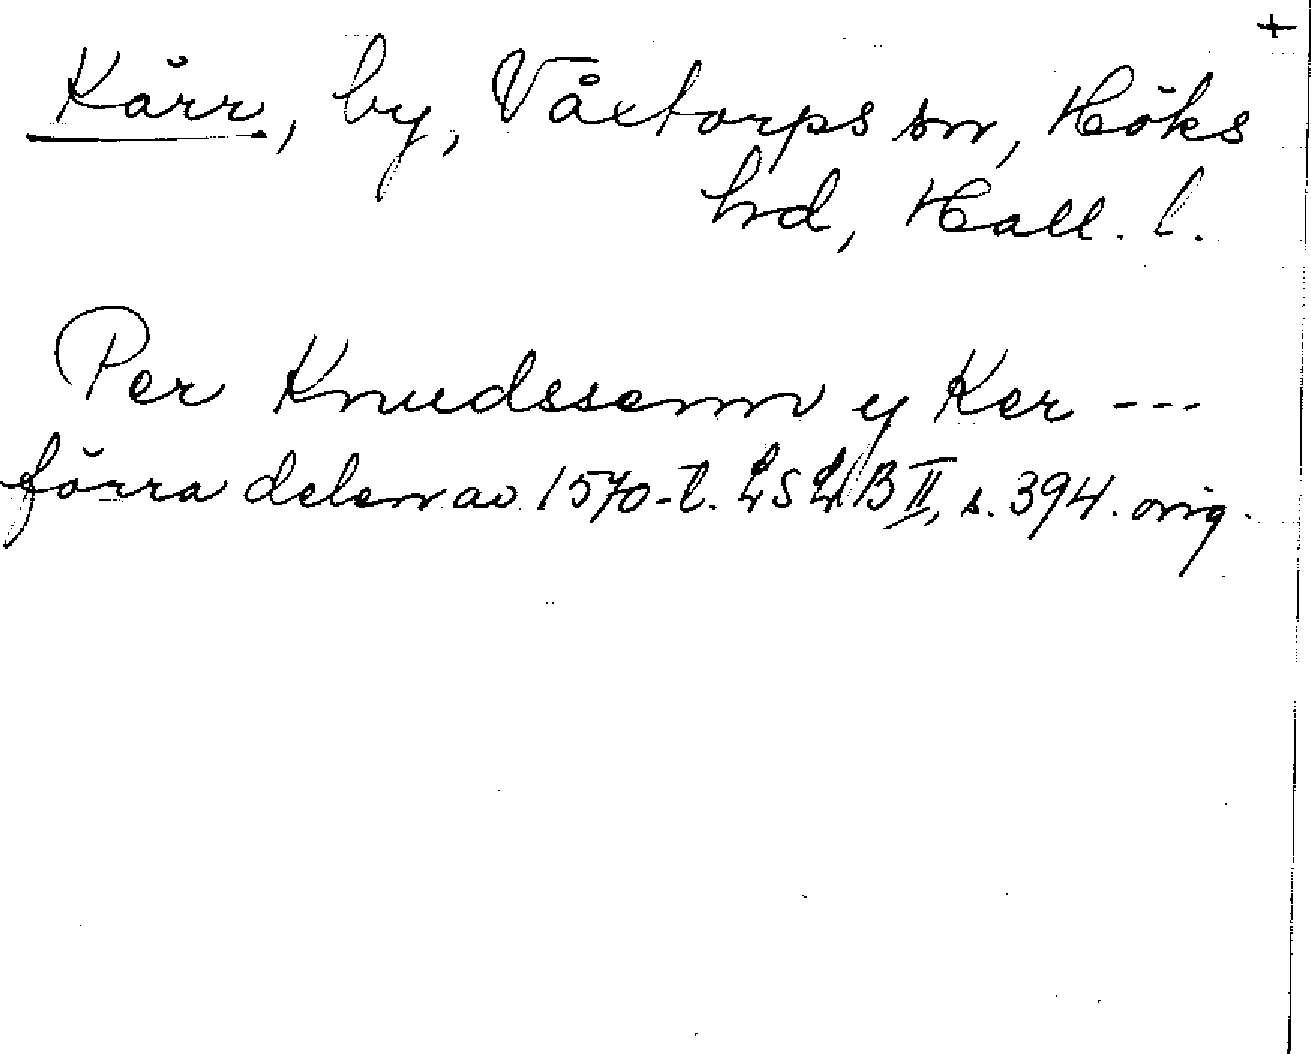 +
Kärr, by, Våxtorps sn, Höks
hd, Hall. l.
Per Knudssenn y Ker ---
förra delen av 1570-t. LSLB II, s. 394. orig.